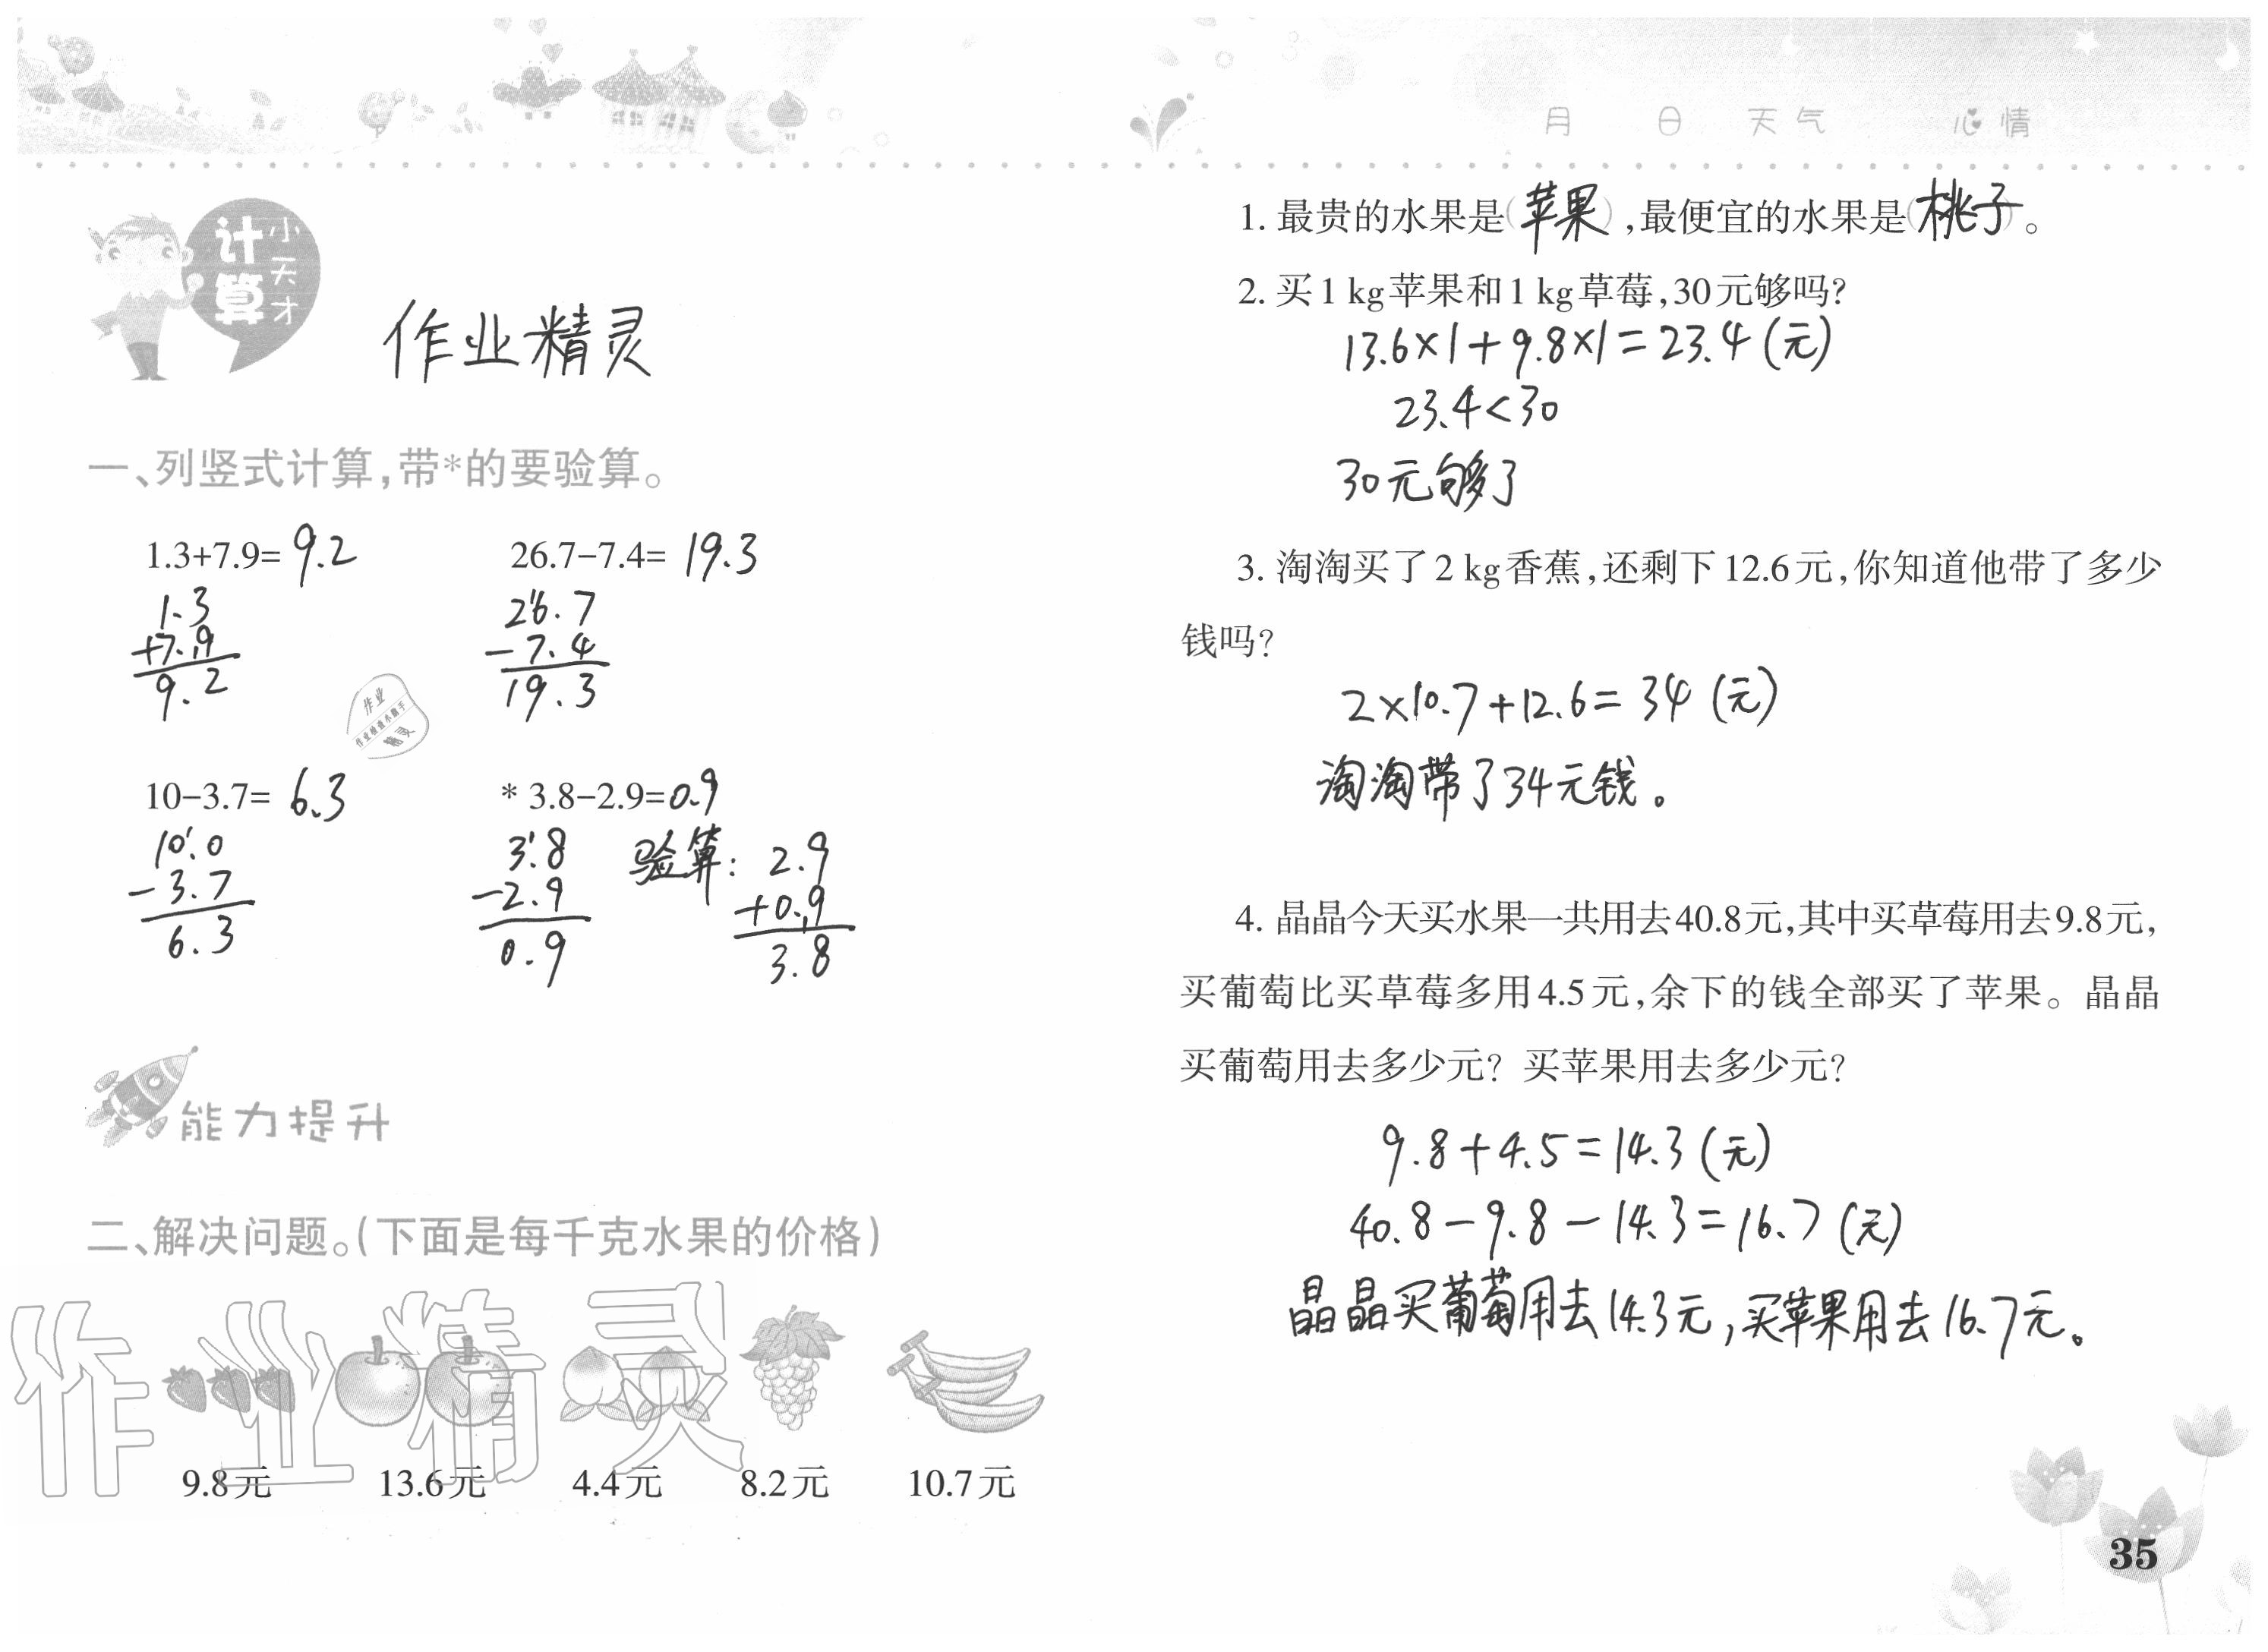 月 日 天气 心情
计算
小天才
作业精灵
一、列竖式计算,带*的要验算。
1.3+7.9= 9.2
26.7-7.4= 19.3
1.3
+7.9
9.2
26.7
-7.4
19.3
作业
作业检查小助手
精灵
10-3.7= 6.3
* 3.8-2.9=0.9
10.0
-3.7
6.3
3.8
-2.9
0.9
验算: 2.9
+0.9
3.8
能力提升
二、解决问题。(下面是每千克水果的价格)
作业精灵
9.8元 13.6元 4.4元 8.2元 10.7元
1. 最贵的水果是(苹果),最便宜的水果是(桃子)。
2. 买1 kg苹果和1 kg草莓,30元够吗?
13.6×1+9.8×1=23.4(元)
23.4<30
30元够了
3. 淘淘买了2 kg香蕉,还剩下12.6元,你知道他带了多少
钱吗?
2×10.7+12.6=34(元)
淘淘带了34元钱。
4. 晶晶今天买水果一共用去40.8元,其中买草莓用去9.8元,
买葡萄比买草莓多用4.5元,余下的钱全部买了苹果。晶晶
买葡萄用去多少元? 买苹果用去多少元?
9.8+4.5=14.3(元)
40.8-9.8-14.3=16.7(元)
晶晶买葡萄用去14.3元,买苹果用去16.7元。
35